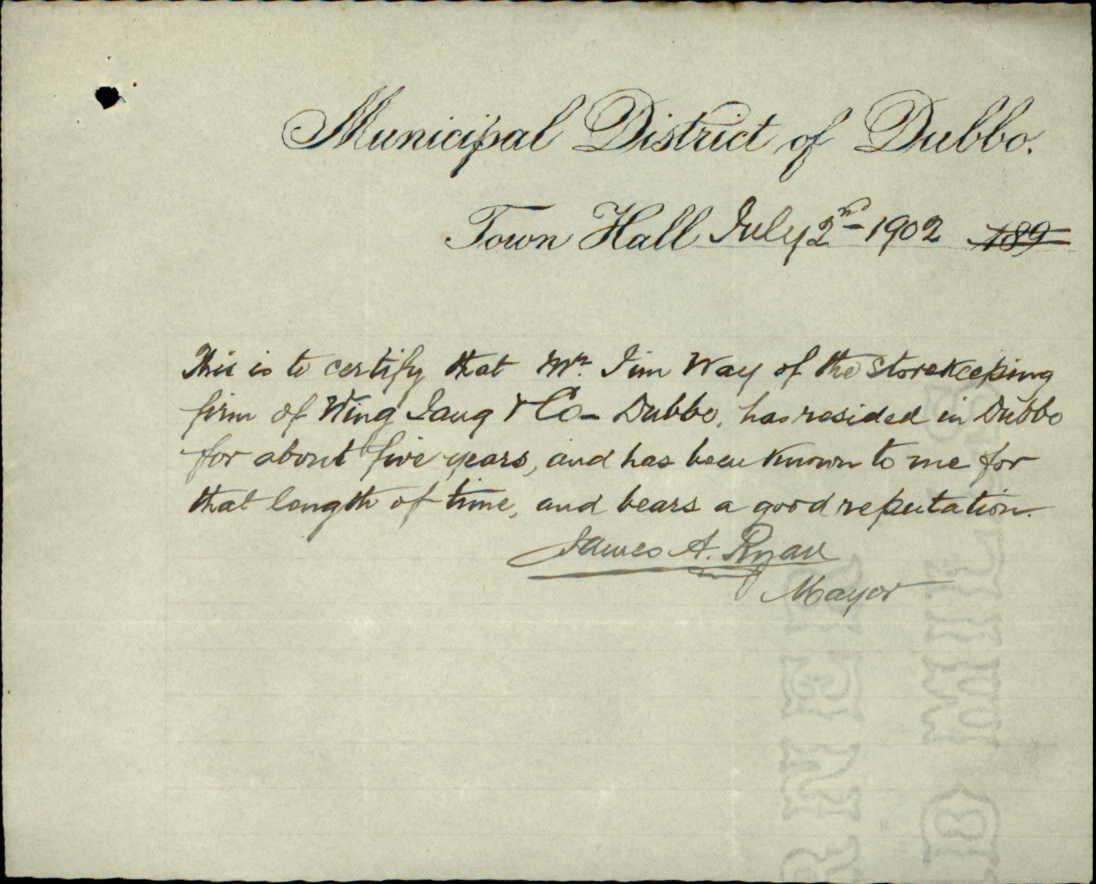 Municipal District of Dubbo.
Town Hall July 2nd 1902 189
This is to certify that Mr. Jim Way of the Storekeeping
firm of Wing & Co - Dubbo, has resided in Dubbo
for about five years, and has been known to me for
that length of time, and bears a good reputation.
James A. Ryan
Mayor